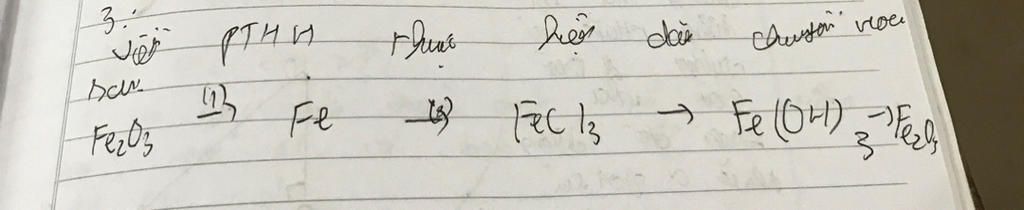 3: Viết PTHH thực hiện dãy chuyển hóa
sau
Fe₂O₃ (1)→ Fe (2)→ FeCl₃ → Fe(OH)₃ → Fe₂O₃